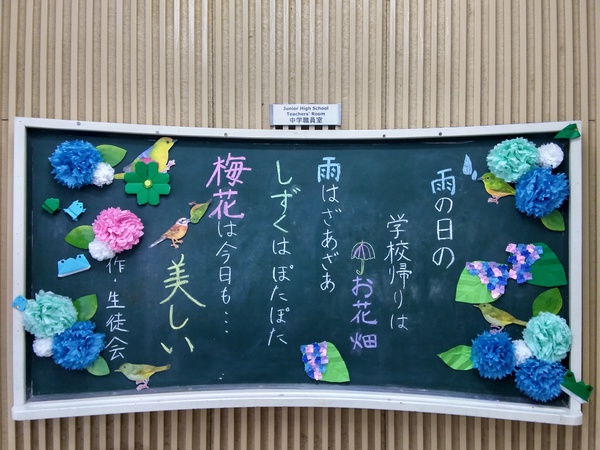 Junior High School
Teachers' Room
中学職員室
雨の日の
学校帰りは
お花畑
雨はざあざあ
しずくはぽたぽた
梅花は今日も…
美しい
作・生徒会